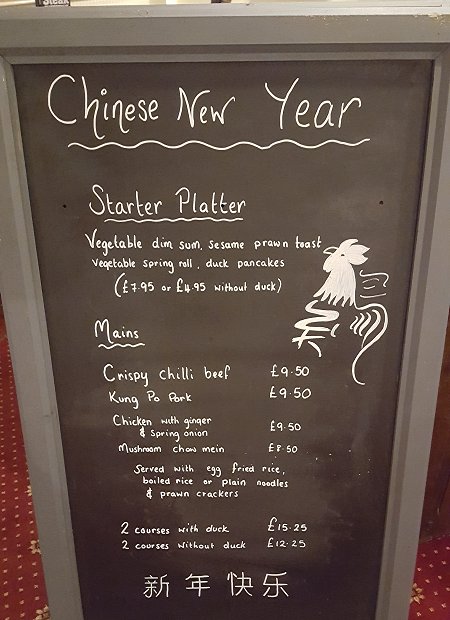 Steak
Chinese New Year
Starter Platter
Vegetable dim sum, sesame prawn toast
Vegetable spring roll, duck pancakes
(£7.95 or £4.95 without duck)
Mains
Crispy chilli beef £9.50
Kung Po Pork £9.50
Chicken with ginger
& spring onion £9.50
Mushroom chow mein £8.50
Served with egg fried rice,
boiled rice or plain noodles
& prawn crackers
2 courses with duck £15.25
2 courses without duck £12.25
新年快乐